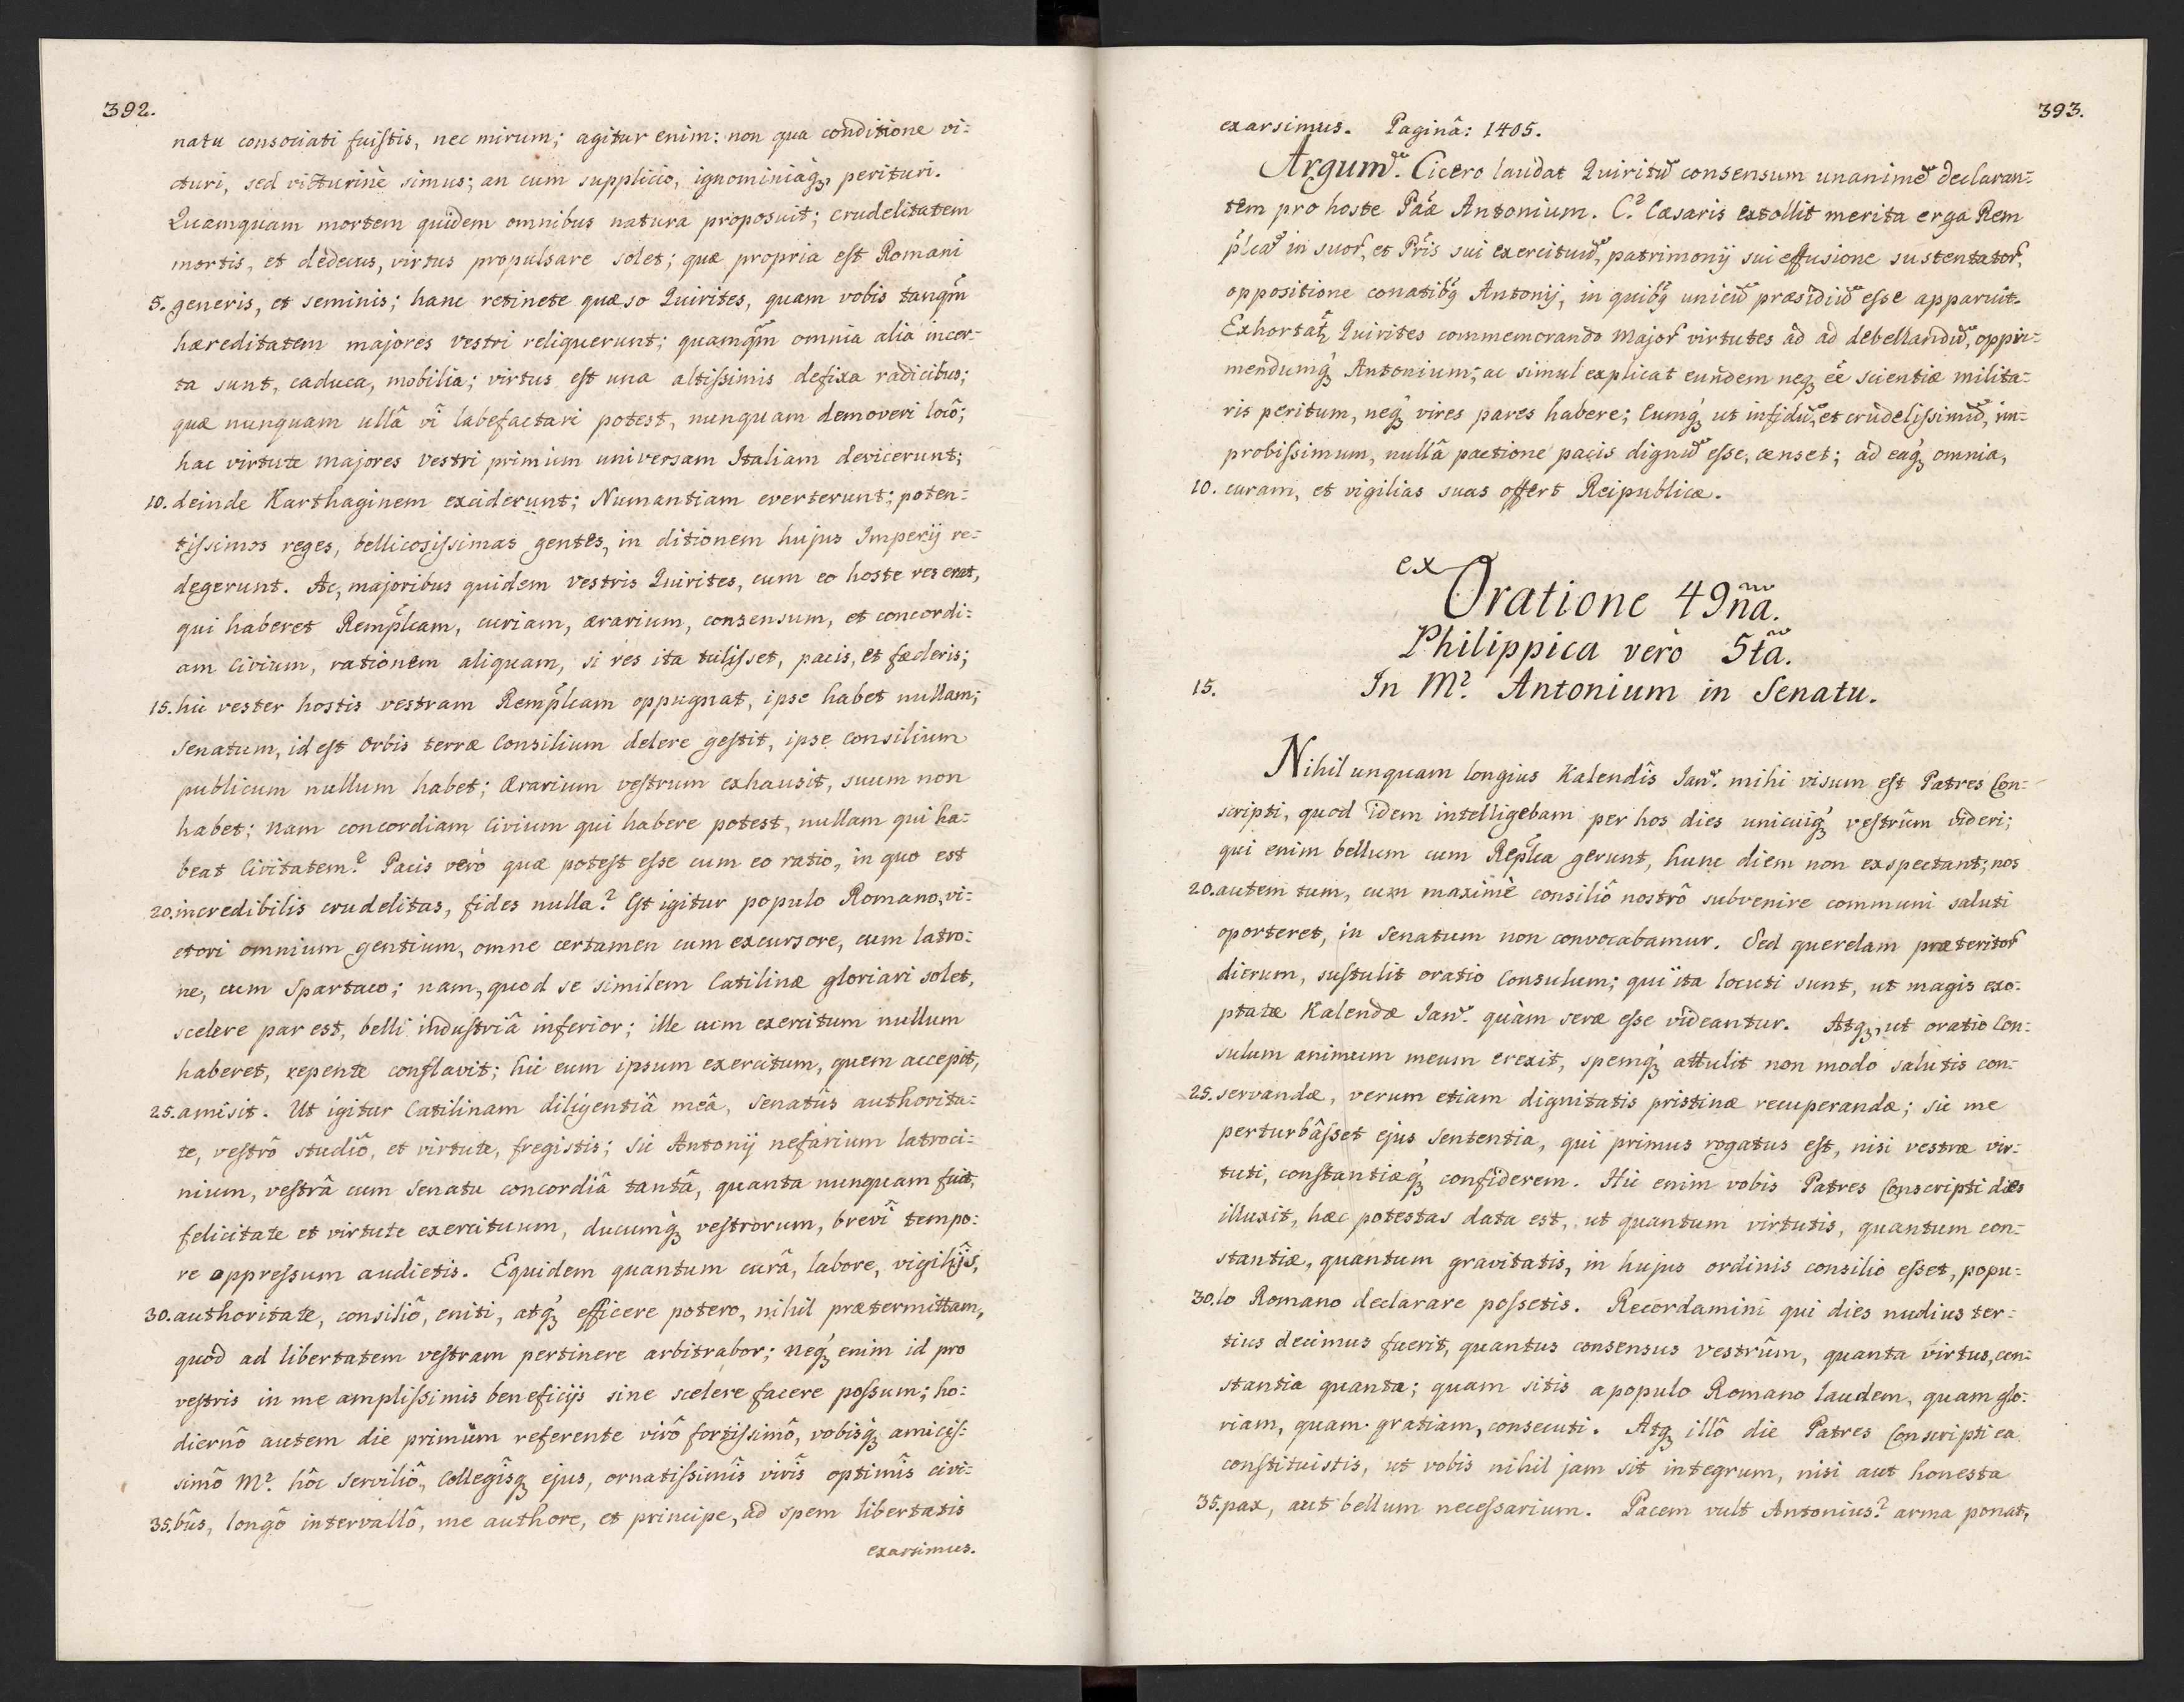 392.
natu consociati fuistis, nec mirum; agitur enim: non qua conditione vi-
cturi, sed victurinè simus; an cum supplicio, ignominiaq́ꝫ, perituri.
Quamquam mortem quidem omnibus natura proposuit; crudelitatem
mortis, et dèdecus, virtus propulsare solet; quæ propria est Romani
5. generis, et seminis; hanc retinete quæso Quirites, quam vobis tanqm̃
hæreditatem majores vestri reliquerunt; quamqm̃ omnia alia incer-
ta sunt, caduca, mobilia; virtus est una altissimis defixa radicibus;
quæ nunquam ullâ vî labefactari potest, nunquam demoveri locô;
hac virtute majores vestri primium universam Italiam devicerunt;
10. deinde Karthaginem exciderunt; Numantiam everterunt; poten-
tissimos reges, bellicosissimas gentes, in ditionem hujus Imperij re-
degerunt. Ac, majoribus quidem vestris Quirites, cum eo hoste res erat,
qui haberet Remp̃lcam, curiam, ærarium, consensum, et concordi-
am Civium, rationem aliquam, si res ita tulisset, pacis, et fæderis;
15. hic vester hostis vestram Remp̃lcam oppugnat, ipse habet nullam;
Senatum, id est Orbis terræ Consilium delere gestit, ipse consilium
publicum nullum habet; Ærarium vestrum exhausit, suum non
habet; nam concordiam Civium qui habere potest, nullam qui ha-
beat Civitatem? Pacis verò quæ potest esse cum eo ratio, in quo est
20. incredibilis crudelitas, fides nulla? Est igitur populo Romano, vi-
ctori omnium gentium, omne certamen cum excursore, cum latro-
ne, cum Spartaco; nam, quod se similem Catilinæ gloriari solet,
scelere par est, belli industriâ inferior; ille cum exercitum nullum
haberet, repente conflavit; hic eum ipsum exercitum, quem accepit,
25. amisit. Ut igitur Catilinam diligentiâ meâ, Senatûs authorita-
te, vestrô studiô, et virtute, fregistis; sic Antonij nefarium latroci-
nium, vestrâ cum Senatu concordiâ tantâ, quanta nunquam fuit,
felicitate et virtute exercituum, ducumq́ꝫ vestrorum, brevî tempo-
re oppressum audietis. Equidem quantum curâ, labore, vigilijs,
30. authoritate, consiliô, eniti, atq́ꝫ efficere potero, nihil prætermittam,
quod ad libertatem vestram pertinere arbitrabor; neq́ꝫ enim id pro
vestris in me amplissimis beneficijs sine scelere facere possum; ho-
diernô autem die primùm referente virô fortissimô, vobisq́ꝫ amicis-
simô M? hôc Serviliô, Collegîsqꝫ ejus, ornatissimîs virîs optimîs civi-
35. bûs, longô intervallô, me authore, et principe, ad spem libertatis
exarsimus.
393.
exarsimus. Paginâ: 1405.
Argum̃. Cicero laudat Quiritũ consensum unanimẽ declaran-
tem pro hoste Pãæ Antonium. C? Cæsaris extollit merita erga Rem
p̃lcã in suor, et Pr̃is sui exercituũ, patrimonij sui effusione sustentator,
oppositione conatibꝫ Antonij, in quibꝫ unicũ præsidiũ esse apparuit.
Exhortat̃ Quirites commemorando major virtutes ad ad debellandũ, oppri-
mendumq́ꝫ Antonium; ac simul explicat eundem neqꝫ ẽe scientiæ milita-
ris peritum, neq́ꝫ vires pares habere; Eumq́ꝫ ut infidũ, et crudelissimũ, im-
probissimum, nullâ pactione pacis dignũ esse, censet; ad eaq́ꝫ omnia,
10. curam, et vigilias suas offert Reipublicæ.
ex
Oratione 49ña.
Philippica verò 5tã.
15. In M? Antonium in Senatu.
Nihil unquam longius Kalendîs Janr. mihi visum est Patres Con-
scripti, quod idem intelligebam per hos dies unicuiq́ꝫ vestrûm videri;
qui enim bellum cum Rep̃lca gerunt, hunc diem non exspectant; nos
20. autem tum, cum maximè consiliô nostrô subvenire communi saluti
oporteret, in Senatum non convocabamur. Sed querelam præteritor
dierum, sustulit oratio Consulum; qui ita locuti sunt, ut magis exo-
ptatæ Kalendæ Janr. quàm seræ esse videantur. Atqꝫ, ut oratio Con-
sulum animum meum erexit, spemq́ꝫ attulit non modo salutis con-
25. servandæ, verum etiam dignitatis pristinæ recuperandæ; sic me
perturbâsset ejus sententia, qui primus rogatus est, nisi vestræ vir-
tuti, constantiæq́ꝫ confiderem. Hic enim vobis Patres Conscripti dies
illuxit, hæc potestas data est, ut quantum virtutis, quantum con-
stantiæ, quantum gravitatis, in hujus ordinis consilio esset, popu-
30. lo Romano declarare possetis. Recordamini qui dies nudius ter-
tius decimus fuerit, quantus consensus vestrûm, quanta virtus, con-
stantia quanta; quam sitis a populo Romano laudem, quam glo-
riam, quam gratiam, consecuti. Atqꝫ illô die Patres Conscripti ea
constituistis, ut vobis nihil jam sit integrum, nisi aut honesta
35. pax, aut bellum necessarium. Pacem vult Antonius? arma ponat,